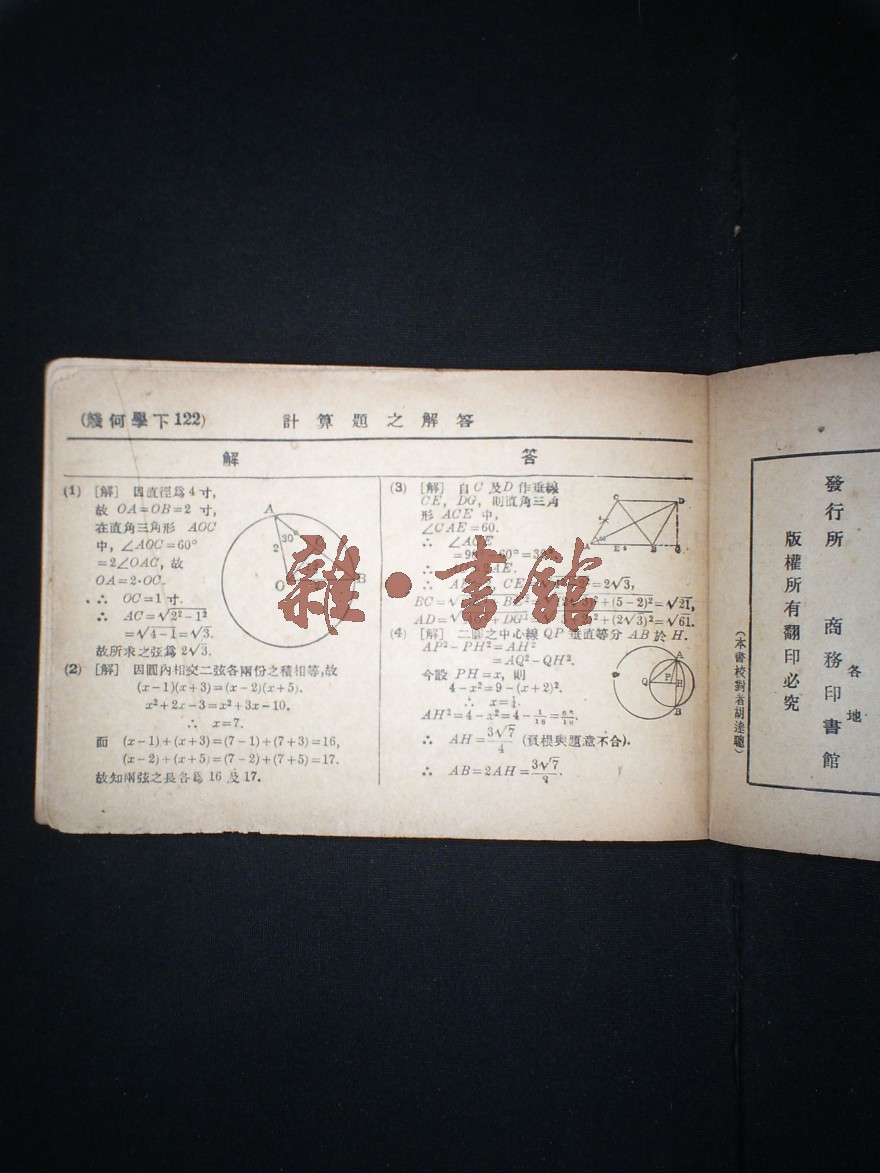 (幾何學下122) 計算題之解答
解 答
(1) [解] 因直徑爲4寸,
故 OA=OB=2 寸,
在直角三角形 AOC
中, ∠AOC=60°
=2∠OAC, 故
OA=2·OC.
∴ OC=1 寸.
∴ AC=√2²−1²
=√4−1=√3.
故所求之弦爲 2√3.
A
30°
2
O
B
(2) [解] 因圓內相交二弦各兩份之積相等,故
(x−1)(x+3)=(x−2)(x+5).
x²+2x−3=x²+3x−10.
∴ x=7.
而 (x−1)+(x+3)=(7−1)+(7+3)=16,
(x−2)+(x+5)=(7−2)+(7+5)=17.
故知兩弦之長各爲 16 及 17.
(3) [解] 自 C 及 D 作垂線
CE, DG, 則直角三角
形 ACE 中,
∠CAE=60.
∴ ∠ACE
∴
∴ CE =2√3,
BC=√ +(5−2)²=√21,
AD=√ +DG² +(2√3)²=√61.
C
D
E
B
G
(4) [解] 二圓之中心線 QP 垂直等分 AB 於 H.
AP²−PH²=AH²
=AQ²−QH².
今設 PH=x, 則
4−x²=9−(x+2)².
∴ x=¼.
AH²=4−x²=4−1/16=63/16.
∴ AH=3√7/4 (負根與題意不合).
∴ AB=2AH=3√7/2.
A
Q
P
H
B
雜·書館
(本書校對者胡達聰)
版權所有翻印必究
發行所 商務印書館
各地